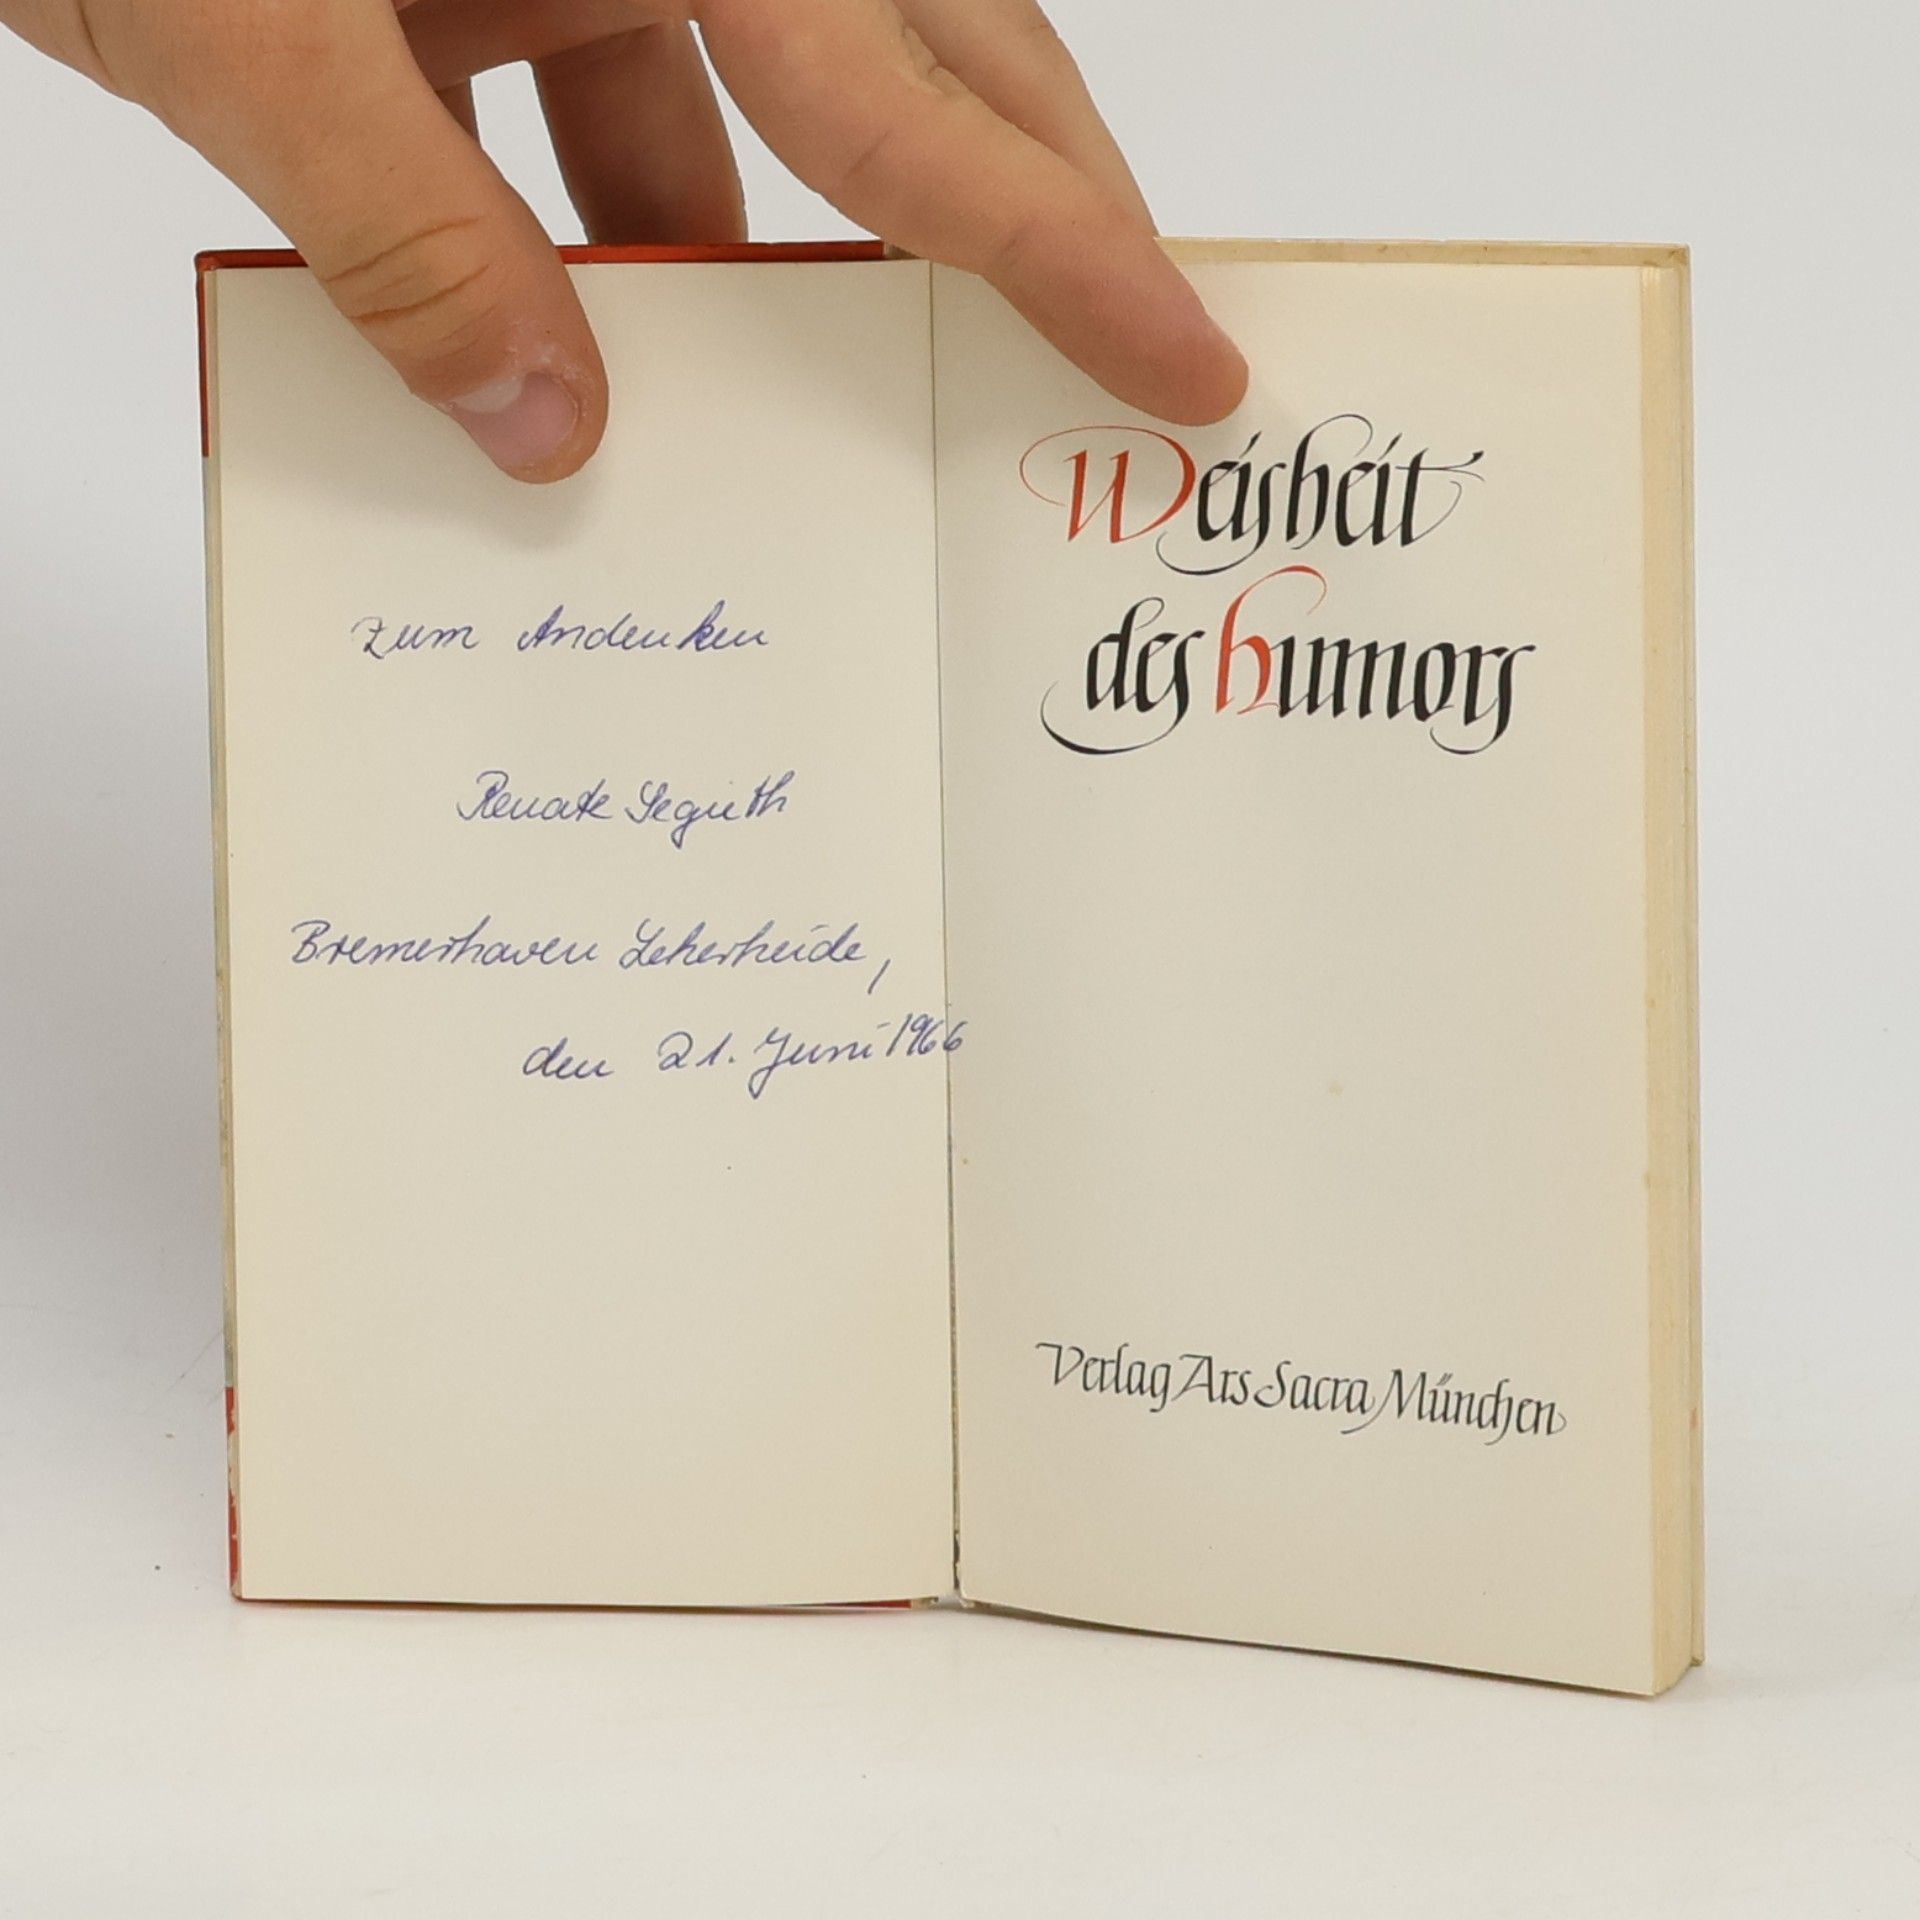 zum Andenken
Renate Seguth
Bremerhaven Leherheide,
den 21. Juni 1966
Weisheit
des humors
Verlag Ars Sacra München